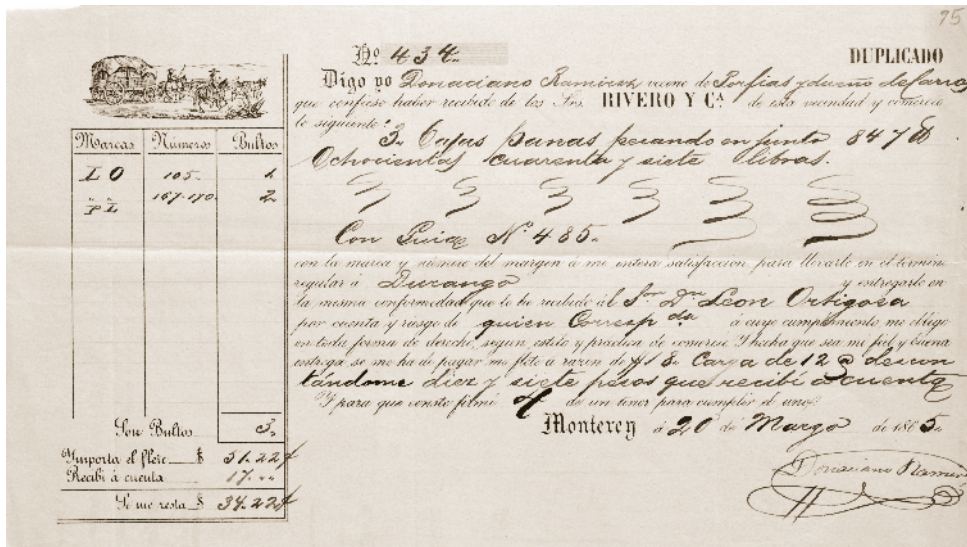 95
Nº 434.
DUPLICADO
Digo yo Donaciano Ramirez vecino de Porfias y dueño de carros
que confieso haber recibido de los Sres. RIVERO Y Cª. de esta vecindad y comercio
lo siguiente:
3. Cajas panas pesando en junto 847 lb
Ochocientas cuarenta y siete libras.
Con Guia Nº 485.
con la marca y número del margen à mi entera satisfaccion para llevarlo en el término
regular à Durango y entregarlo en
la misma conformidad que lo he recibido àl Sor. Dn. Leon Ortigosa
por cuenta y riesgo de quien Correspda à cuyo cumplimiento me obligo
en toda forma de derecho, segun estilo y práctica de comercio. Y hecha que sea mi fiel y buena
entrega, se me ha de pagar mi flete à razon de $18. Carga de 12 @ descon
tándome diez y siete pesos que recibí á cuenta
Y para que conste firmé 4 de un tenor para cumplir de uno.
Monterey à 20 de Marzo de 1865.
Donaciano Ramirez
Marcas Números Bultos
L O 105. 1.
P L 167-170. 2
Son Bultos 3.
Importa el flete $ 51.22
Recibí à cuenta 17. „
Se me resta $ 34.22